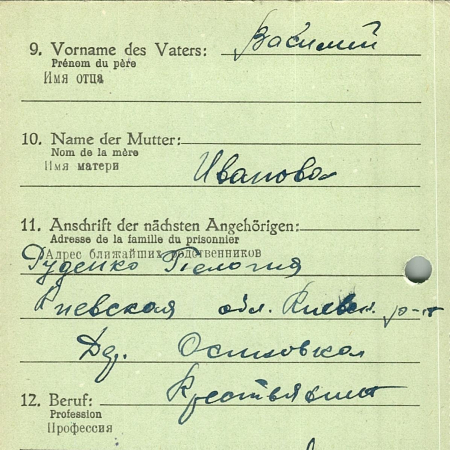 9. Vorname des Vaters: Василий
Prénom du père
Имя отца
10. Name der Mutter:
Nom de la mère
Имя матери
Иванова
11. Anschrift der nächsten Angehörigen:
Adresse de la famille du prisonnier
Адрес ближайших родственников
Руденко Пелогия
Киевская обл. Киевск. р-н
Осиповкая
12. Beruf:
Profession
Профессия